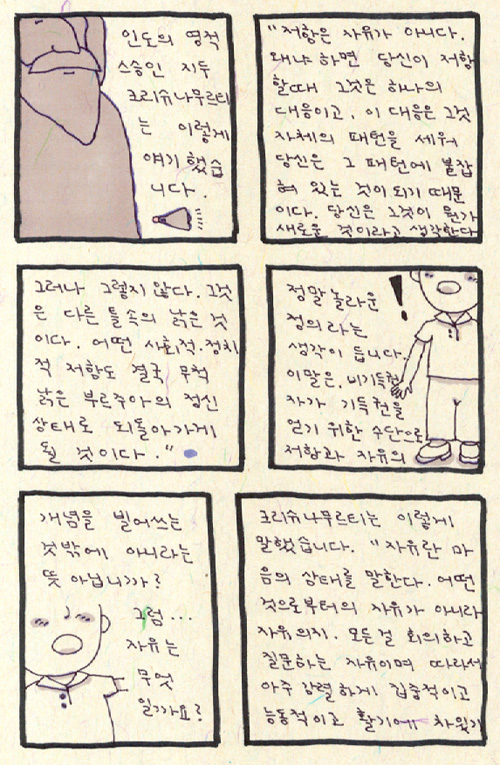 인도의 영적
스승인 지두
크리슈나무르티
는 이렇게
얘기했습
니다.
"저항은 자유가 아니다.
왜냐하면 당신이 저항
할때 그것은 하나의
대응이고, 이 대응은 그것
자체의 패턴을 세워
당신은 그 패턴에 붙잡
혀 있는 것이 되기 때문
이다. 당신은 그것이 뭔가
새로운 것이라고 생각한다
그러나 그렇지 않다. 그것
은 다른 틀속의 낡은 것
이다. 어떤 사회적·정치
적 저항도 결국 무적
낡은 부르주아의 정신
상태로 되돌아가게
될 것이다."
정말 놀라운
정의라는
생각이 듭니다.
이말은, 비기득권
자가 기득권을
얻기 위한 수단으로
저항과 자유의
!
개념을 빌어쓰는
것밖에 아니라는
뜻 아닙니까?
그럼...
자유는
무엇
일까요?
크리슈나무르티는 이렇게
말했습니다. "자유란 마
음의 상태를 말한다. 어떤
것으로부터의 자유가 아니라
자유의지. 모든걸 회의하고
질문하는 자유이며 따라서
아주 강렬하게 집중적이고
능동적이고 활기에 차있기